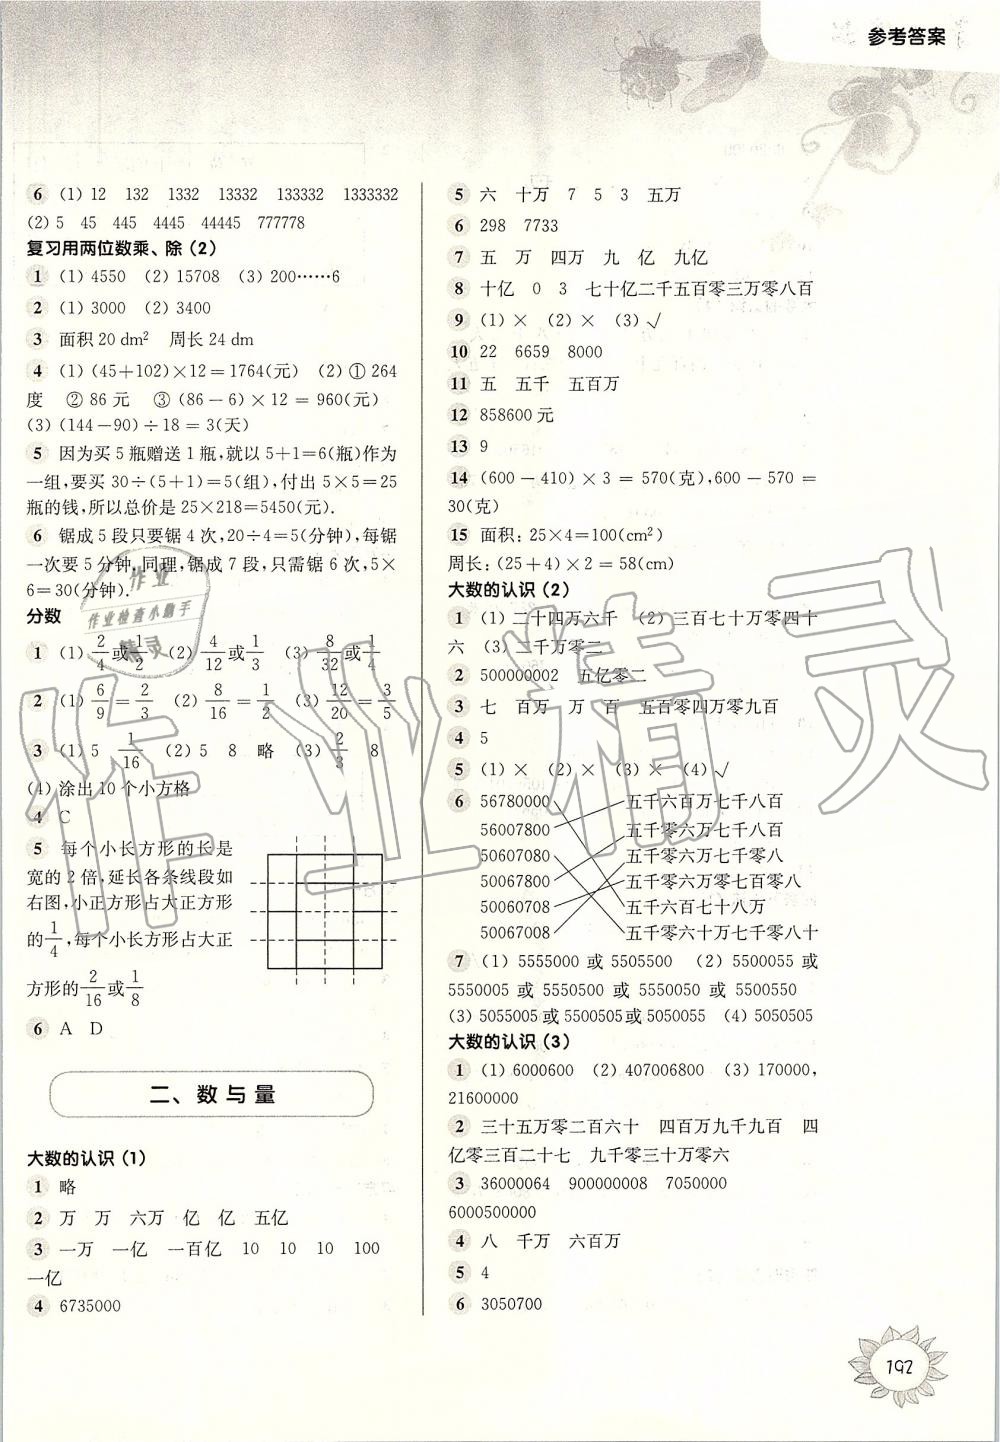 参考答案
6 (1) 12 132 1332 13332 133332 1333332
(2) 5 45 445 4445 44445 777778
复习用两位数乘、除(2)
1 (1) 4550 (2) 15708 (3) 200……6
2 (1) 3000 (2) 3400
3 面积 20 dm² 周长 24 dm
4 (1) (45+102)×12=1764(元) (2) ① 264
度 ② 86 元 ③ (86-6)×12=960(元)
(3) (144-90)÷18=3(天)
5 因为买 5 瓶赠送 1 瓶,就以 5+1=6(瓶)作为
一组,要买 30÷(5+1)=5(组),付出 5×5=25
瓶的钱,所以总价是 25×218=5450(元).
6 锯成 5 段只要锯 4 次,20÷4=5(分钟),每锯
一次要 5 分钟,同理,锯成 7 段,只需锯 6 次,5×
6=30(分钟).
分数
1 (1) 2/4或1/2 (2) 4/12或1/3 (3) 8/32或1/4
2 (1) 6/9=2/3 (2) 8/16=1/2 (3) 12/20=3/5
3 (1) 5 1/16 (2) 5 8 略 (3) 2/3 8
(4) 涂出 10 个小方格
4 C
5 每个小长方形的长是
宽的 2 倍,延长各条线段如
右图,小正方形占大正方形
的1/4,每个小长方形占大正
方形的2/16或1/8
6 A D
二、数与量
大数的认识(1)
1 略
2 万 万 六万 亿 亿 五亿
3 一万 一亿 一百亿 10 10 10 100
一亿
4 6735000
5 六 十万 7 5 3 五万
6 298 7733
7 五 万 四万 九 亿 九亿
8 十亿 0 3 七十亿二千五百零三万零八百
9 (1) × (2) × (3) √
10 22 6659 8000
11 五 五千 五百万
12 858600 元
13 9
14 (600-410)×3=570(克),600-570=
30(克)
15 面积: 25×4=100(cm²)
周长: (25+4)×2=58(cm)
大数的认识(2)
1 (1) 二十四万六千 (2) 三百七十万零四十
六 (3) 二千万零二
2 500000002 五亿零二
3 七 百万 万 百 五百零四万零九百
4 5
5 (1) × (2) × (3) × (4) √
6 56780000 五千六百万七千八百
56007800 五千零六万七千八百
50607080 五千零六万七千零八
50067800 五千零六万零七百零八
50060708 五千六百七十八万
50067008 五千零六十万七千零八十
7 (1) 5555000 或 5505500 (2) 5500055 或
5550005 或 5550500 或 5550050 或 5500550
(3) 5055005 或 5500505 或 5050055 (4) 5050505
大数的认识(3)
1 (1) 6000600 (2) 407006800 (3) 170000,
21600000
2 三十五万零二百六十 四百万九千九百 四
亿零三百二十七 九千零三十万零六
3 36000064 900000008 7050000
6000500000
4 八 千万 六百万
5 4
6 3050700
192
作业
作业检查小助手
精灵
作业精灵